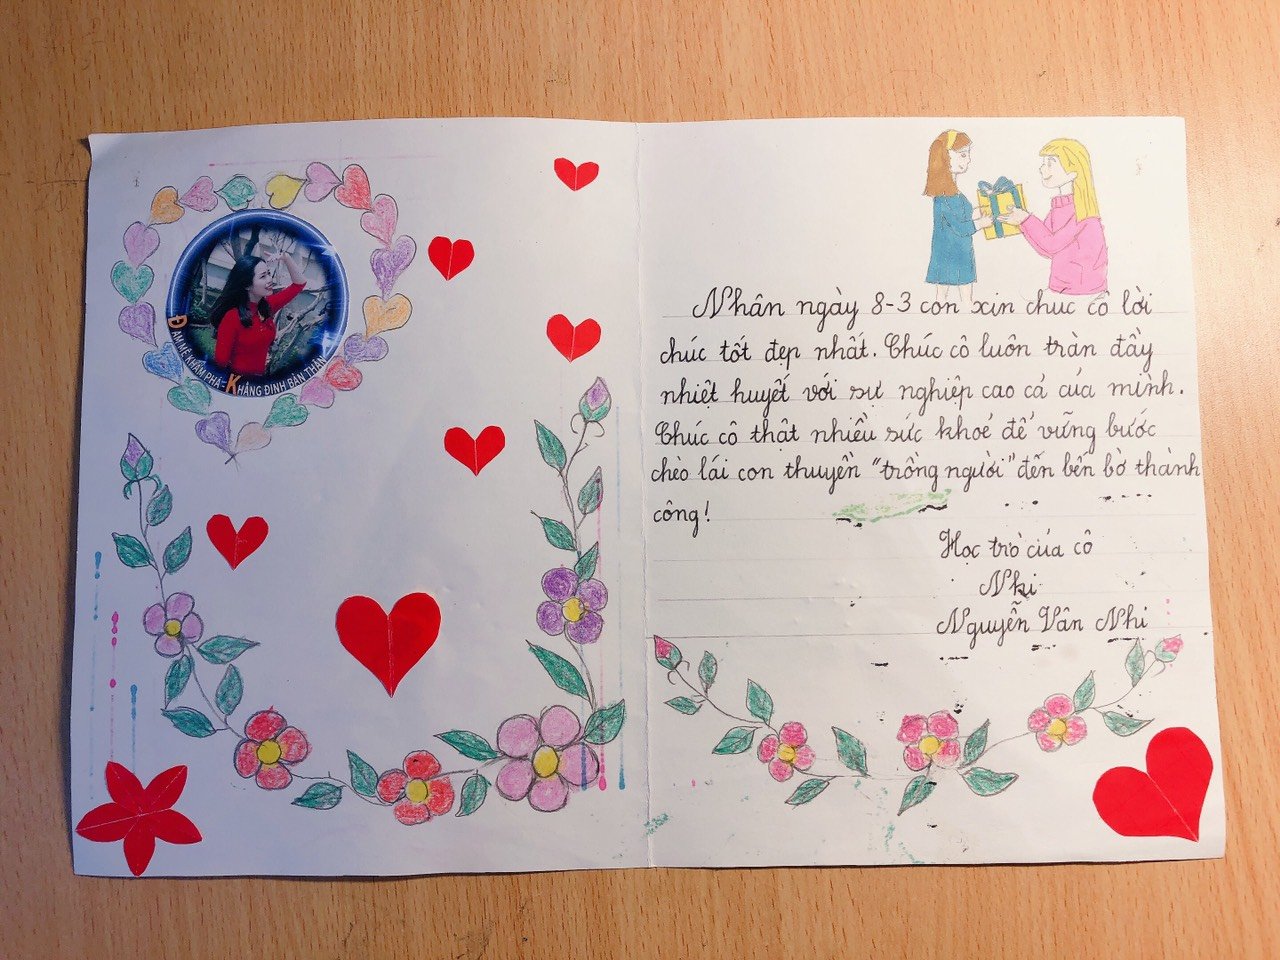 ĐAM MÊ KHÁM PHÁ - KHẲNG ĐỊNH BẢN THÂN
Nhân ngày 8-3 con xin chúc cô lời
chúc tốt đẹp nhất. Chúc cô luôn tràn đầy
nhiệt huyết với sự nghiệp cao cả của mình.
Chúc cô thật nhiều sức khoẻ để vững bước
chèo lái con thuyền "trồng người" đến bến bờ thành
công!
Học trò của cô
Nhi
Nguyễn Vân Nhi